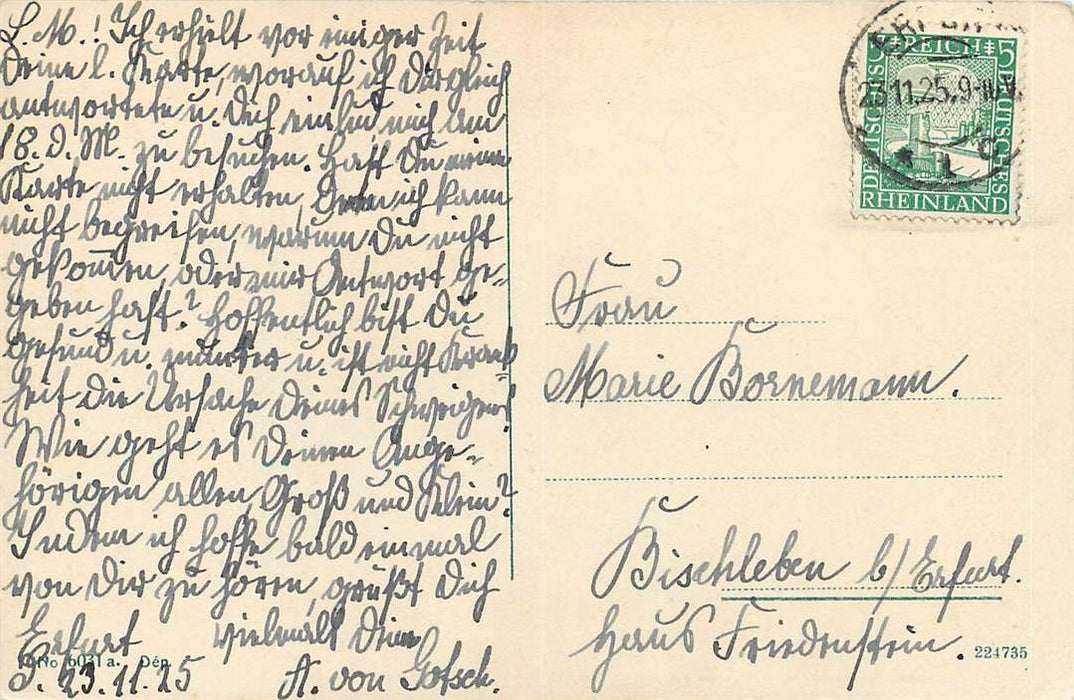 L. M.! Ich erhielt vor einiger Zeit
Deine l. Karte, worauf ich Dir gleich
antwortete u. Dich einlud, mich am
18. d. M. zu besuchen. Hast Du meine
Karte nicht erhalten, denn ich kann
nicht begreifen, warum Du nicht
gekom̅en, oder mir Antwort ge-
geben hast? Hoffentlich bist Du
gesund u. munter u. ist nicht Krank-
heit die Ursache Deines Schweigens!
Wie geht es Deinen Ange-
hörigen allen, Groß und Klein?
Indem ich hoffe bald einmal
von Dir zu hören, grüßt Dich
vielmals Deine
A. von Gotsch.
Erfurt
23.11.25
No 6031a. Dép.
DEUTSCHES REICH 5
5 DEUTSCHES
RHEINLAND
23.11.25.9-
Frau
Marie Bornemann.
Bischleben b/Erfurt.
Haus Friedenstein.
224735